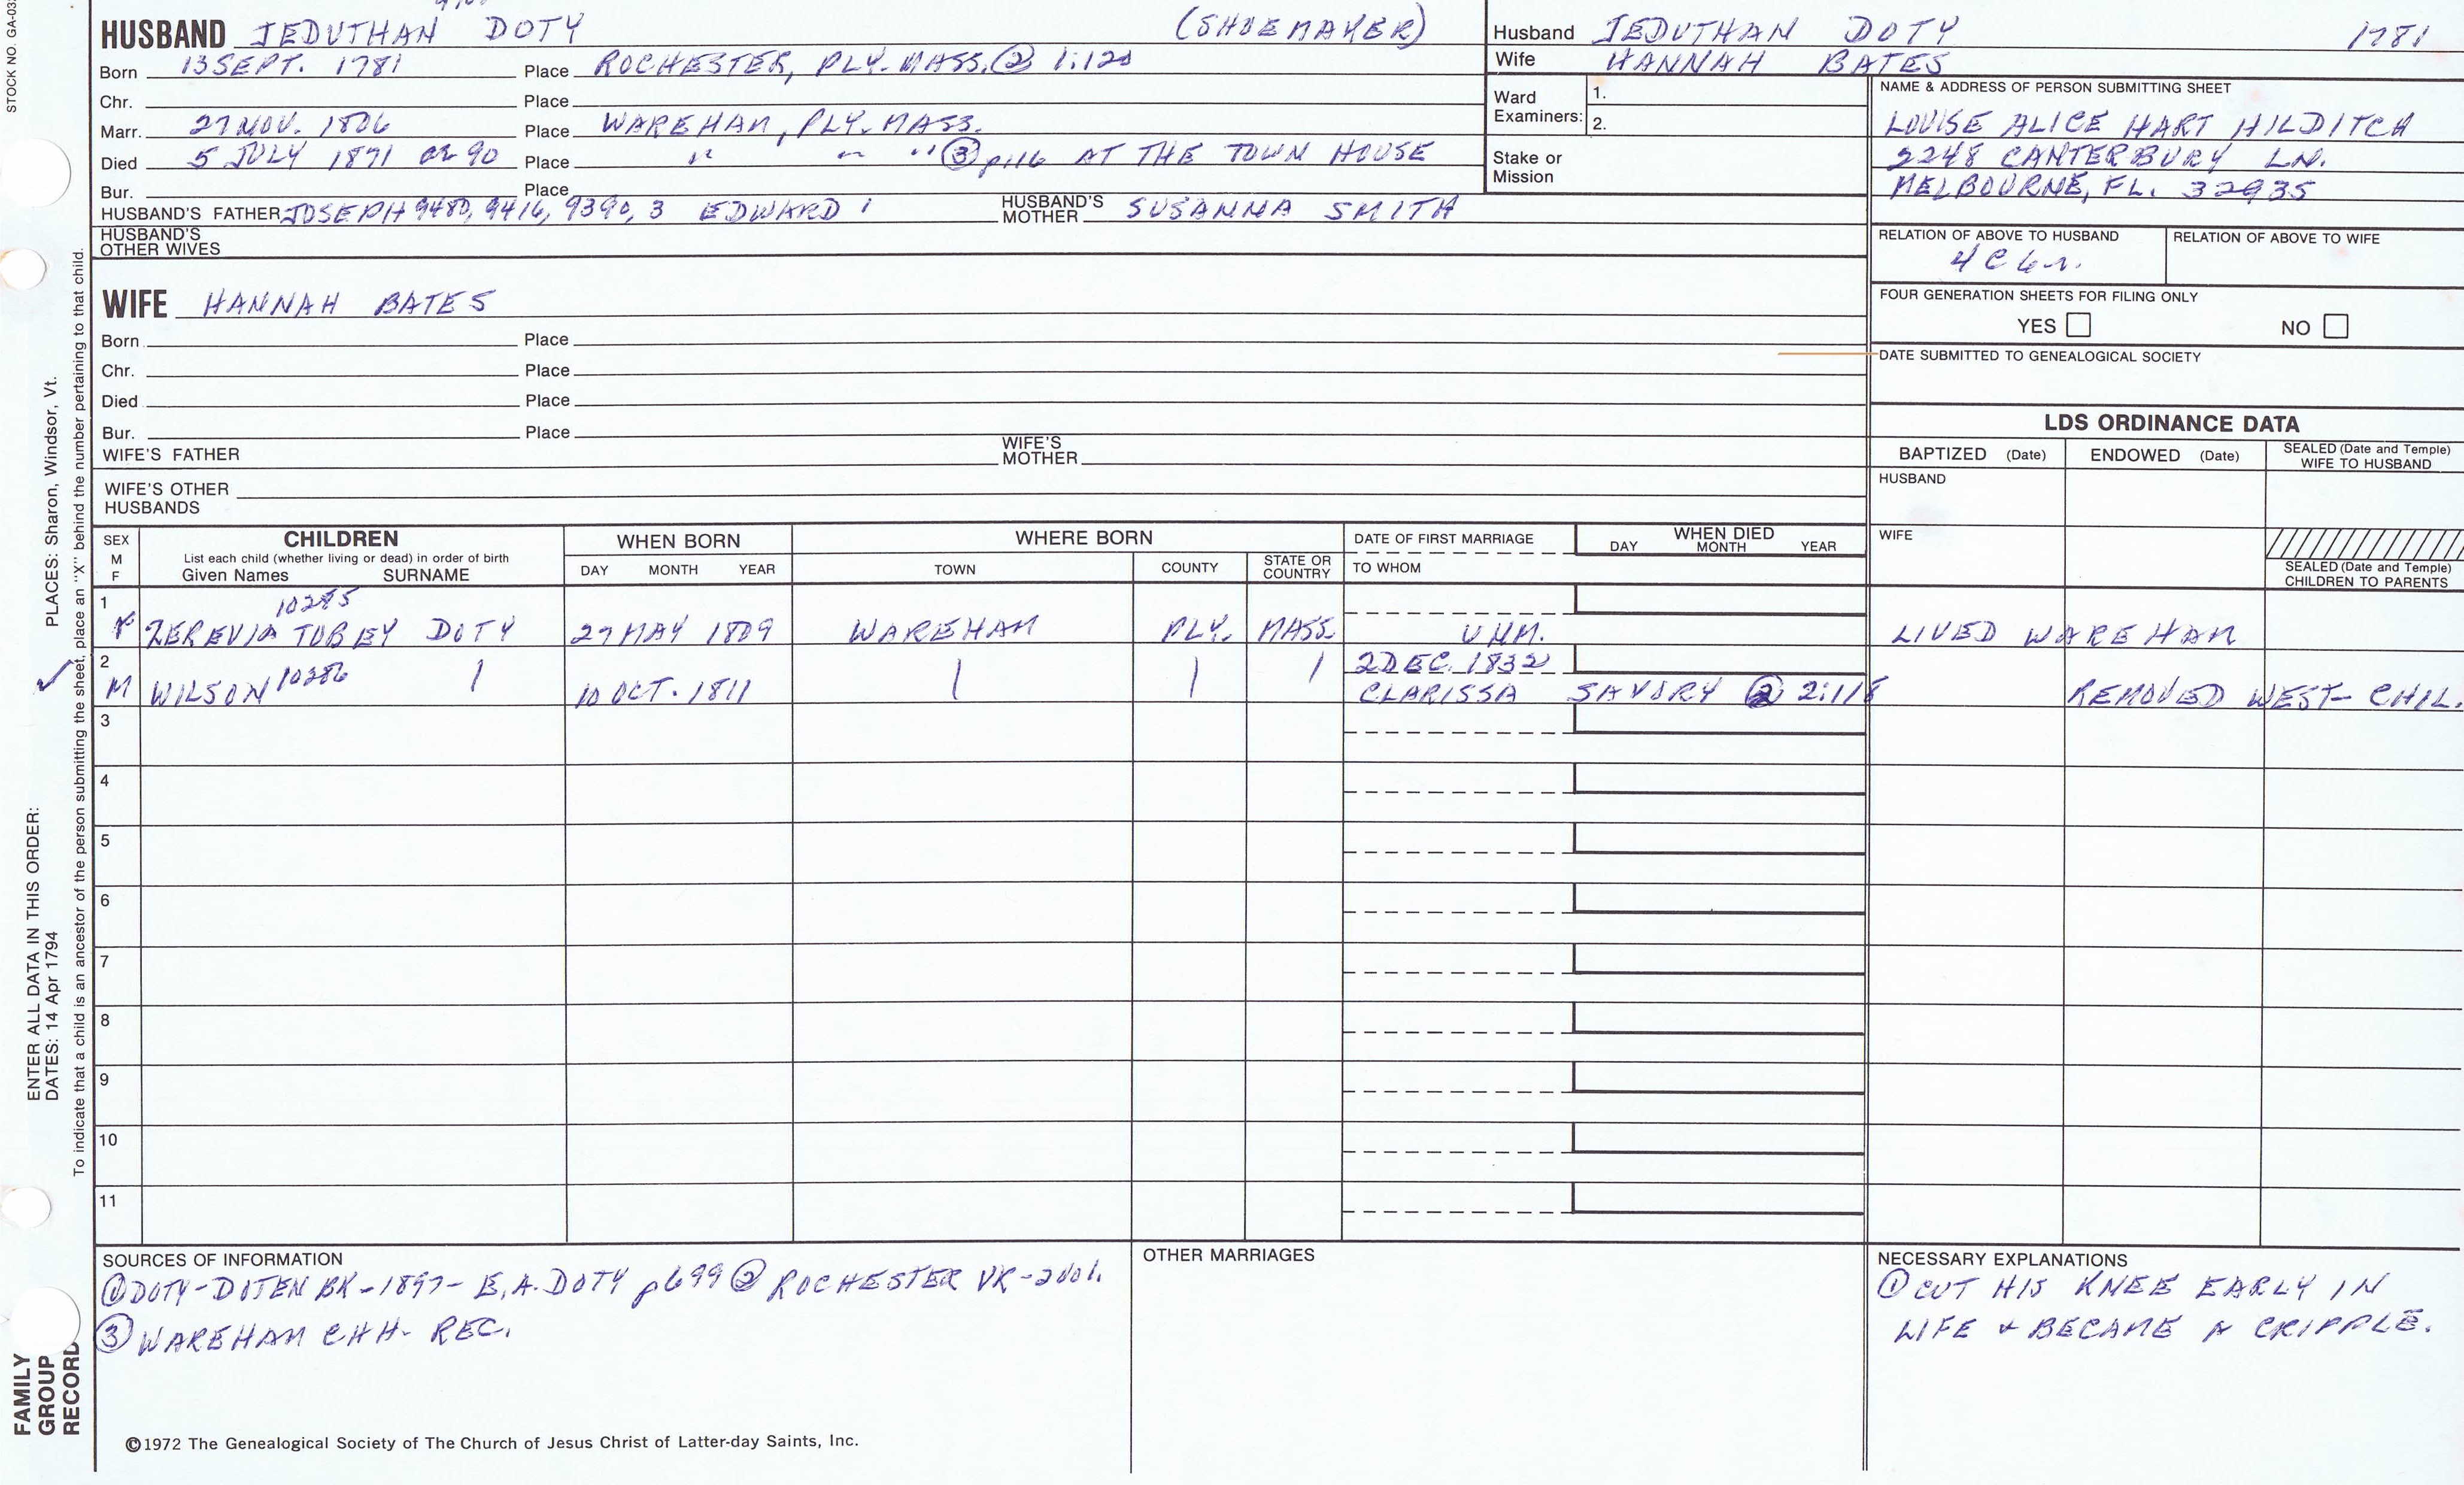 STOCK NO. GA-03
HUSBAND JEDUTHAN DOTY (SHOEMAKER)
Born 13 SEPT. 1781 Place ROCHESTER, PLY. MASS. ② 1:120
Chr. Place
Marr. 27 NOV. 1806 Place WAREHAM, PLY. MASS.
Died 5 JULY 1871 OR 90 Place " " " ③ p116 AT THE TOWN HOUSE
Bur. Place
HUSBAND'S FATHER JOSEPH 9480, 9416, 9390, 3 EDWARD 1 HUSBAND'S MOTHER SUSANNA SMITH
HUSBAND'S OTHER WIVES
Husband JEDUTHAN DOTY 1781
Wife HANNAH BATES
Ward Examiners: 1.
2.
Stake or Mission
NAME & ADDRESS OF PERSON SUBMITTING SHEET
LOUISE ALICE HART HILDITCH
2248 CANTERBURY LN.
MELBOURNE, FL. 32935
RELATION OF ABOVE TO HUSBAND RELATION OF ABOVE TO WIFE
4 C 6 r.
FOUR GENERATION SHEETS FOR FILING ONLY
YES NO
DATE SUBMITTED TO GENEALOGICAL SOCIETY
WIFE HANNAH BATES
Born Place
Chr. Place
Died Place
Bur. Place
WIFE'S FATHER WIFE'S MOTHER
WIFE'S OTHER HUSBANDS
LDS ORDINANCE DATA
BAPTIZED (Date) ENDOWED (Date) SEALED (Date and Temple) WIFE TO HUSBAND
HUSBAND
WIFE
SEALED (Date and Temple) CHILDREN TO PARENTS
SEX M F CHILDREN WHEN BORN WHERE BORN DATE OF FIRST MARRIAGE WHEN DIED
List each child (whether living or dead) in order of birth
Given Names SURNAME DAY MONTH YEAR TOWN COUNTY STATE OR COUNTRY TO WHOM DAY MONTH YEAR
1 10285
ZEREVIA TOBEY DOTY 27 MAY 1809 WAREHAM PLY. MASS. UNM. LIVED WAREHAM
2 2 DEC. 1832
M WILSON 10286 10 OCT. 1811 CLARISSA SAVORY ② 2:118 REMOVED WEST- CHIL.
3
4
5
6
7
8
9
10
11
SOURCES OF INFORMATION
① DOTY-DOTEN BK-1897- E.A. DOTY p699 ② ROCHESTER VR-2vol.
③ WAREHAM CHH- REC.
OTHER MARRIAGES
NECESSARY EXPLANATIONS
① CUT HIS KNEE EARLY IN
LIFE + BECAME A CRIPPLE.
©1972 The Genealogical Society of The Church of Jesus Christ of Latter-day Saints, Inc.
ENTER ALL DATA IN THIS ORDER:
DATES: 14 Apr 1794 PLACES: Sharon, Windsor, Vt.
To indicate that a child is an ancestor of the person submitting the sheet, place an "X" behind the number pertaining to that child.
FAMILY
GROUP
RECORD